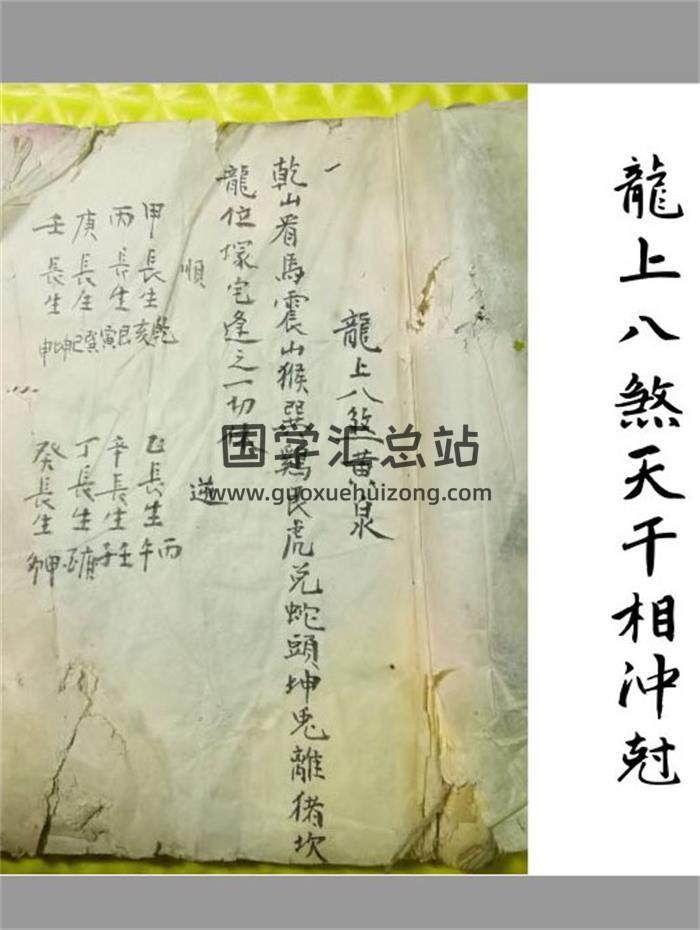 龍上八煞天干相沖尅
龍上八煞黄泉
一
乾山看馬震山猴巽鷄艮虎兌蛇頭坤兔離猪坎
龍位塚宅逢之一切休
順
甲長生乾亥
丙長生艮寅
庚長生巽巳
壬長生坤申
逆
乙長生丙午
辛長生壬子
丁長生庚酉
癸長生甲卯
国学汇总站
www.guoxuehuizong.com